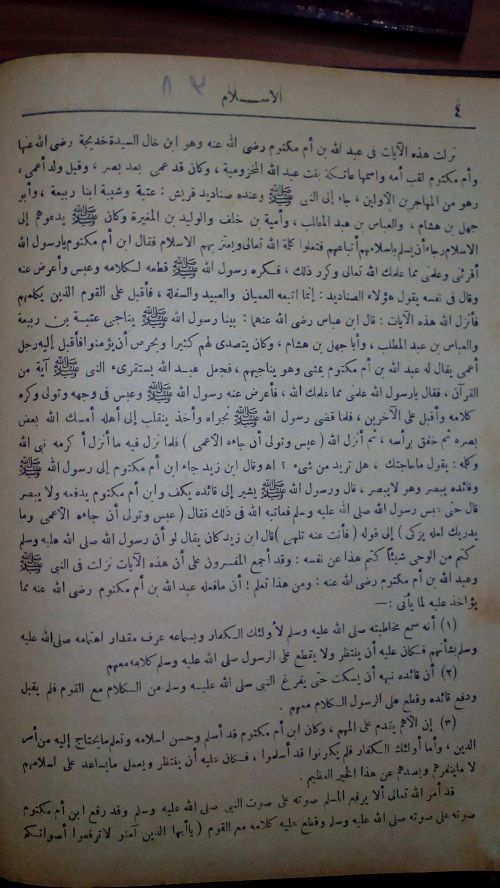 ٣٨
٤ الاسلام
نزلت هذه الآيات فى عبد الله بن أم مكتوم رضى الله عنه وهو ابن خال السيدة خديجة رضى الله عنها
وأم مكتوم لقب أمه واسمها عاتكة بنت عبد الله المخزومية ، وكان قد عمى بعد بصر ، وقيل ولد أعمى ،
وهو من المهاجرين الاولين ، جاء إلى النبى ﷺ وعنده صناديد قريش : عتبة وشيبة ابنا ربيعة ، وأبو
جهل بن هشام ، والعباس بن عبد المطلب ، وأمية بن خلف والوليد بن المغيرة وكان ﷺ يدعوهم إلى
الاسلام رجاء أن يسلم باسلامهم أتباعهم فتعلوا كلمة الله تعالى ويعتز بهم الاسلام فقال ابن أم مكتوم يارسول الله
أقرئنى وعلمنى مما علمك الله تعالى وكرر ذلك ، فكره رسول الله ﷺ قطعه لكلامه وعبس وأعرض عنه
وقال فى نفسه يقول هؤلاء الصناديد : إنما اتبعه العميان والعبيد والسفلة ، فأقبل على القوم الذين يكلمهم
فأنزل الله هذه الآيات : قال ابن عباس رضى الله عنهما : بينا رسول الله ﷺ يناجى عتبة بن ربيعة
والعباس بن عبد المطلب ، وأبا جهل بن هشام ، وكان يتصدى لهم كثيرا ويحرص أن يؤمنوا فأقبل إليه رجل
أعمى يقال له عبد الله بن أم مكتوم يمشى وهو يناجيهم ، فجعل عبد الله يستقرىء النبى ﷺ آية من
القرآن ، فقال يارسول الله علمنى مما علمك الله ، فأعرض عنه رسول الله ﷺ وعبس فى وجهه وتولى وكره
كلامه وأقبل على الآخرين ، فلما قضى رسول الله ﷺ نجواه وأخذ ينقلب إلى أهله أمسك الله بعض
بصره ثم خفق برأسه ، ثم أنزل الله ( عبس وتولى أن جاءه الاعمى ) فلما نزل فيه ما أنزل أكرمه نبى الله
وكلمه : يقول ماحاجتك ، هل تريد من شىء ؟ اه وقال ابن زيد جاء ابن أم مكتوم إلى رسول الله ﷺ
وقائده يبصر وهو لايبصر ، قال ورسول الله ﷺ يشير إلى قائده يكف وابن أم مكتوم يدفعه ولا يبصر
قال حتى عبس رسول الله صلى الله عليه وسلم فعاتبه الله فى ذلك فقال ( عبس وتولى أن جاءه الاعمى وما
يدريك لعله يزكى ) إلى قوله ( فأنت عنه تلهى ) قال ابن زيد كان يقال لو أن رسول الله صلى الله عليه وسلم
كتم من الوحى شيئا كتم هذا عن نفسه : وقد أجمع المفسرون على أن هذه الآيات نزلت فى النبى ﷺ
وعبد الله بن أم مكتوم رضى الله عنه : ومن هذا تعلم ! أن مافعله عبد الله بن أم مكتوم رضى الله عنه مما
يؤاخذ عليه لما يأتى :—
(١) أنه سمع مخاطبته صلى الله عليه وسلم لأولئك الكفار وبسماعه عرف مقدار اهتمامه صلى الله عليه
وسلم بشأنهم فكان عليه أن ينتظر ولا يقطع على الرسول صلى الله عليه وسلم كلامه معهم
(٢) أن قائده نبهه أن يسكت حتى يفرغ النبى صلى الله عليه وسلم من الكلام مع القوم فلم يقبل
ودفع قائده وقطع على الرسول الكلام معهم .
(٣) إن الأهم يقدم على المهم ، وكان ابن أم مكتوم قد أسلم وحسن اسلامه وتعلم مايحتاج إليه من أمر
الدين ، وأما أولئك الكفار فلم يكونوا قد أسلموا ، فكان عليه أن ينتظر ويعمل مايساعد على اسلامهم
لا ماينفرهم ويصدهم عن هذا الخير العظيم .
قد أمر الله تعالى ألا يرفع المسلم صوته على صوت النبى صلى الله عليه وسلم وقد رفع ابن أم مكتوم
صوته على صوته صلى الله عليه وسلم وقطع عليه كلامه مع القوم ( ياأيها الذين آمنوا لاترفعوا أصواتكم